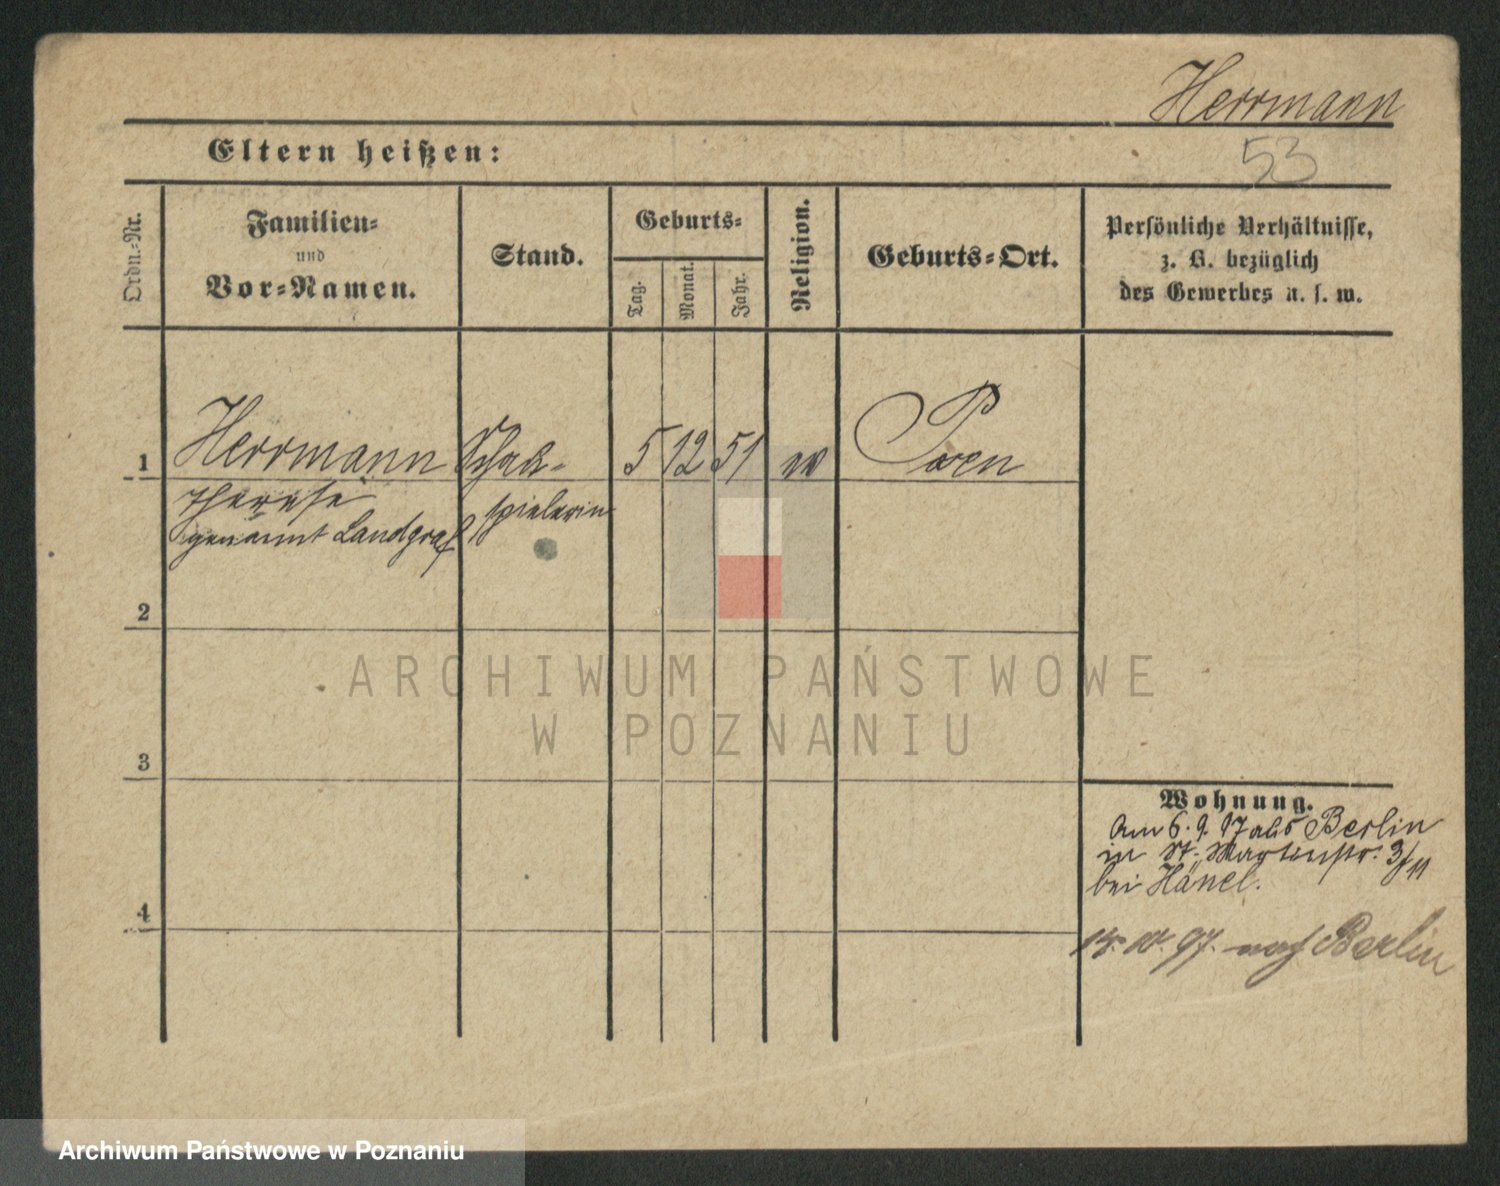 Herrmann
53
Eltern heißen:
Ordn.-Nr.
Familien-
und
Vor-Namen.
Stand.
Geburts-
Tag.
Monat.
Jahr.
Religion.
Geburts-Ort.
Persönliche Verhältnisse,
z. B. bezüglich
des Gewerbes u. s. w.
1
Herrmann
Schau-
5
12
51
ev
Posen
Therese
spielerin
genannt Landgraf
2
ARCHIWUM PAŃSTWOWE
W POZNANIU
3
Wohnung.
Am 6. 9. 97 als Berlin
in St. Martinstr. 3/
bei Hänel.
4
10. 97. nach Berlin
Archiwum Państwowe w Poznaniu